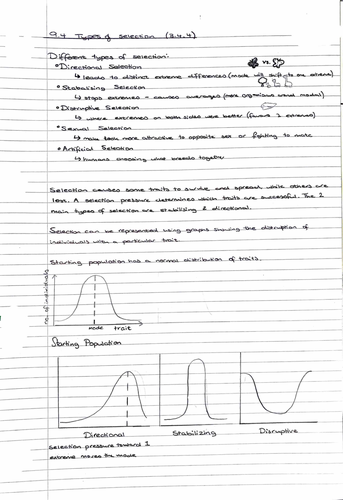 9.4 Types of selection (3.4.4)
Different types of selection:
• Directional Selection vs.
↳ leads to distinct extreme differences (mode will shift to one extreme)
• Stabalising Selection
↳ stops extremes - causes averages (more organisms around modes)
• Disruptive Selection
↳ where extremes on both sides were better (favours 2 extremes)
• Sexual Selection
↳ make them more attractive to opposite sex or fighting to mate
• Artificial Selection
↳ humans choosing who breeds together
Selection causes some traits to survive and spread while others are
less. A selection pressure determines which traits are successful. The 2
main types of selection are stabilizing & directional.
Selection can be represented using graphs showing the disruption of
individuals with a particular trait.
Starting population has a normal distribution of traits.
no. of individuals
mode trait
Starting Population
Directional Stabilizing Disruptive
selection pressure toward 1
extreme moves the mode